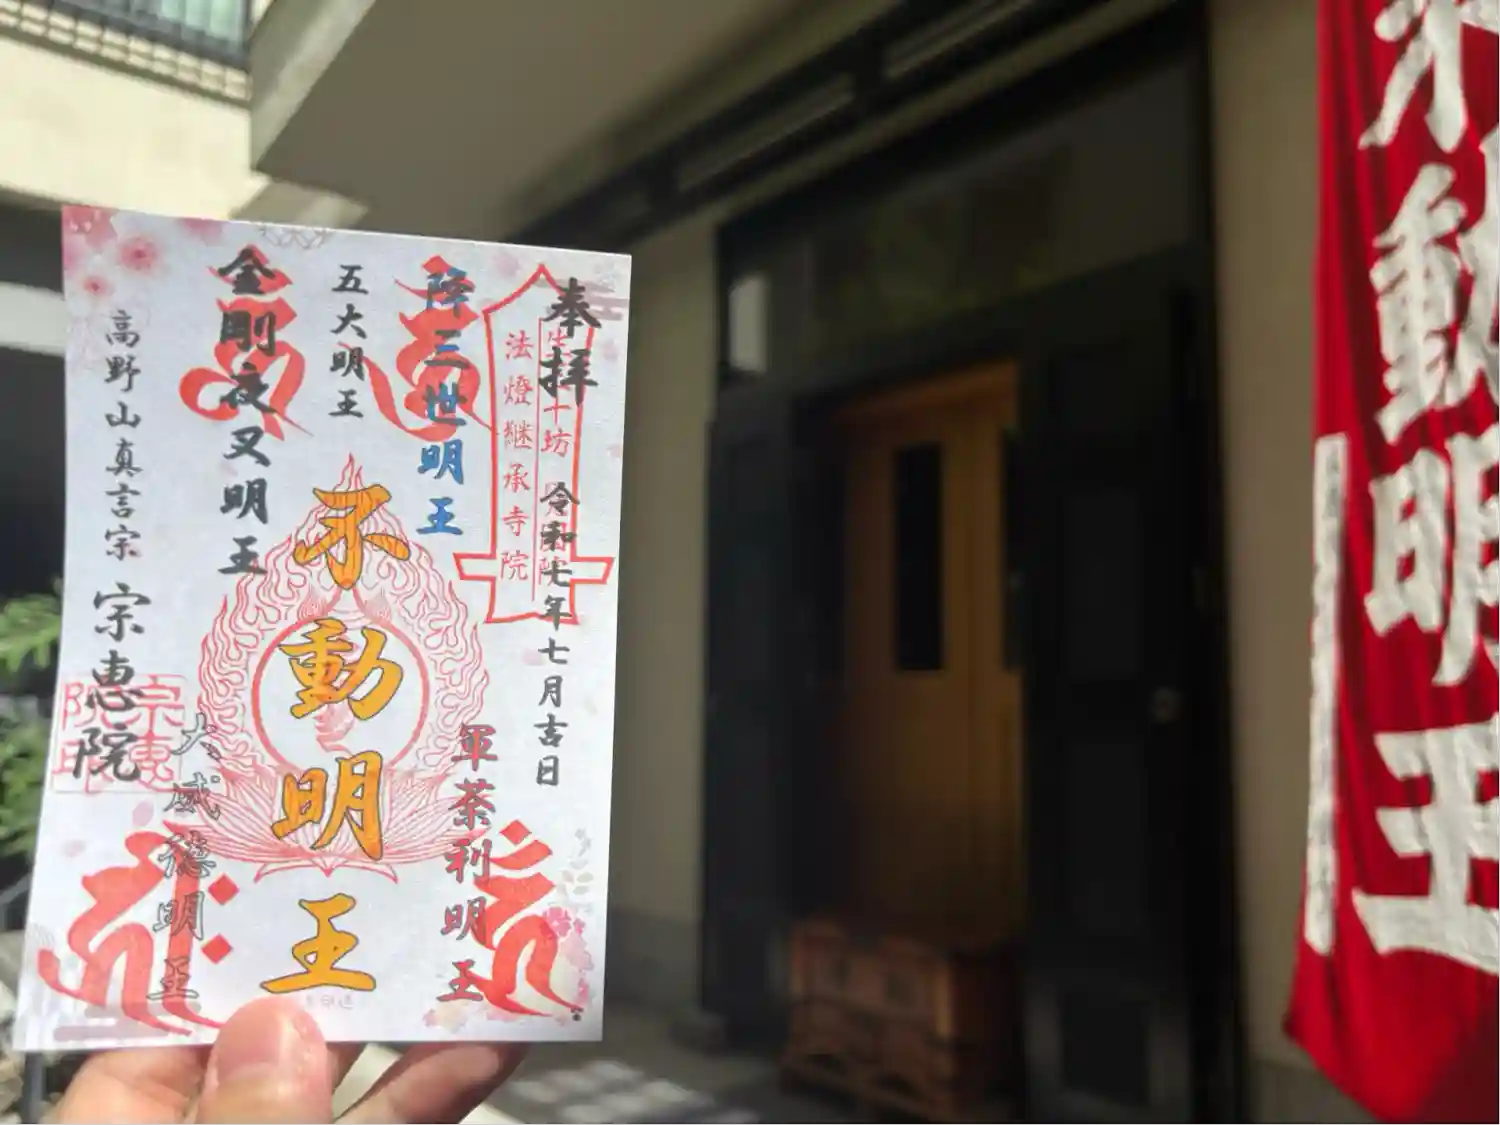 奉拝
令和七年七月吉日
法燈継承寺院
降三世明王
軍荼利明王
五大明王
不動明王
金剛夜叉明王
大威徳明王
高野山真言宗
宗恵院
不動明王